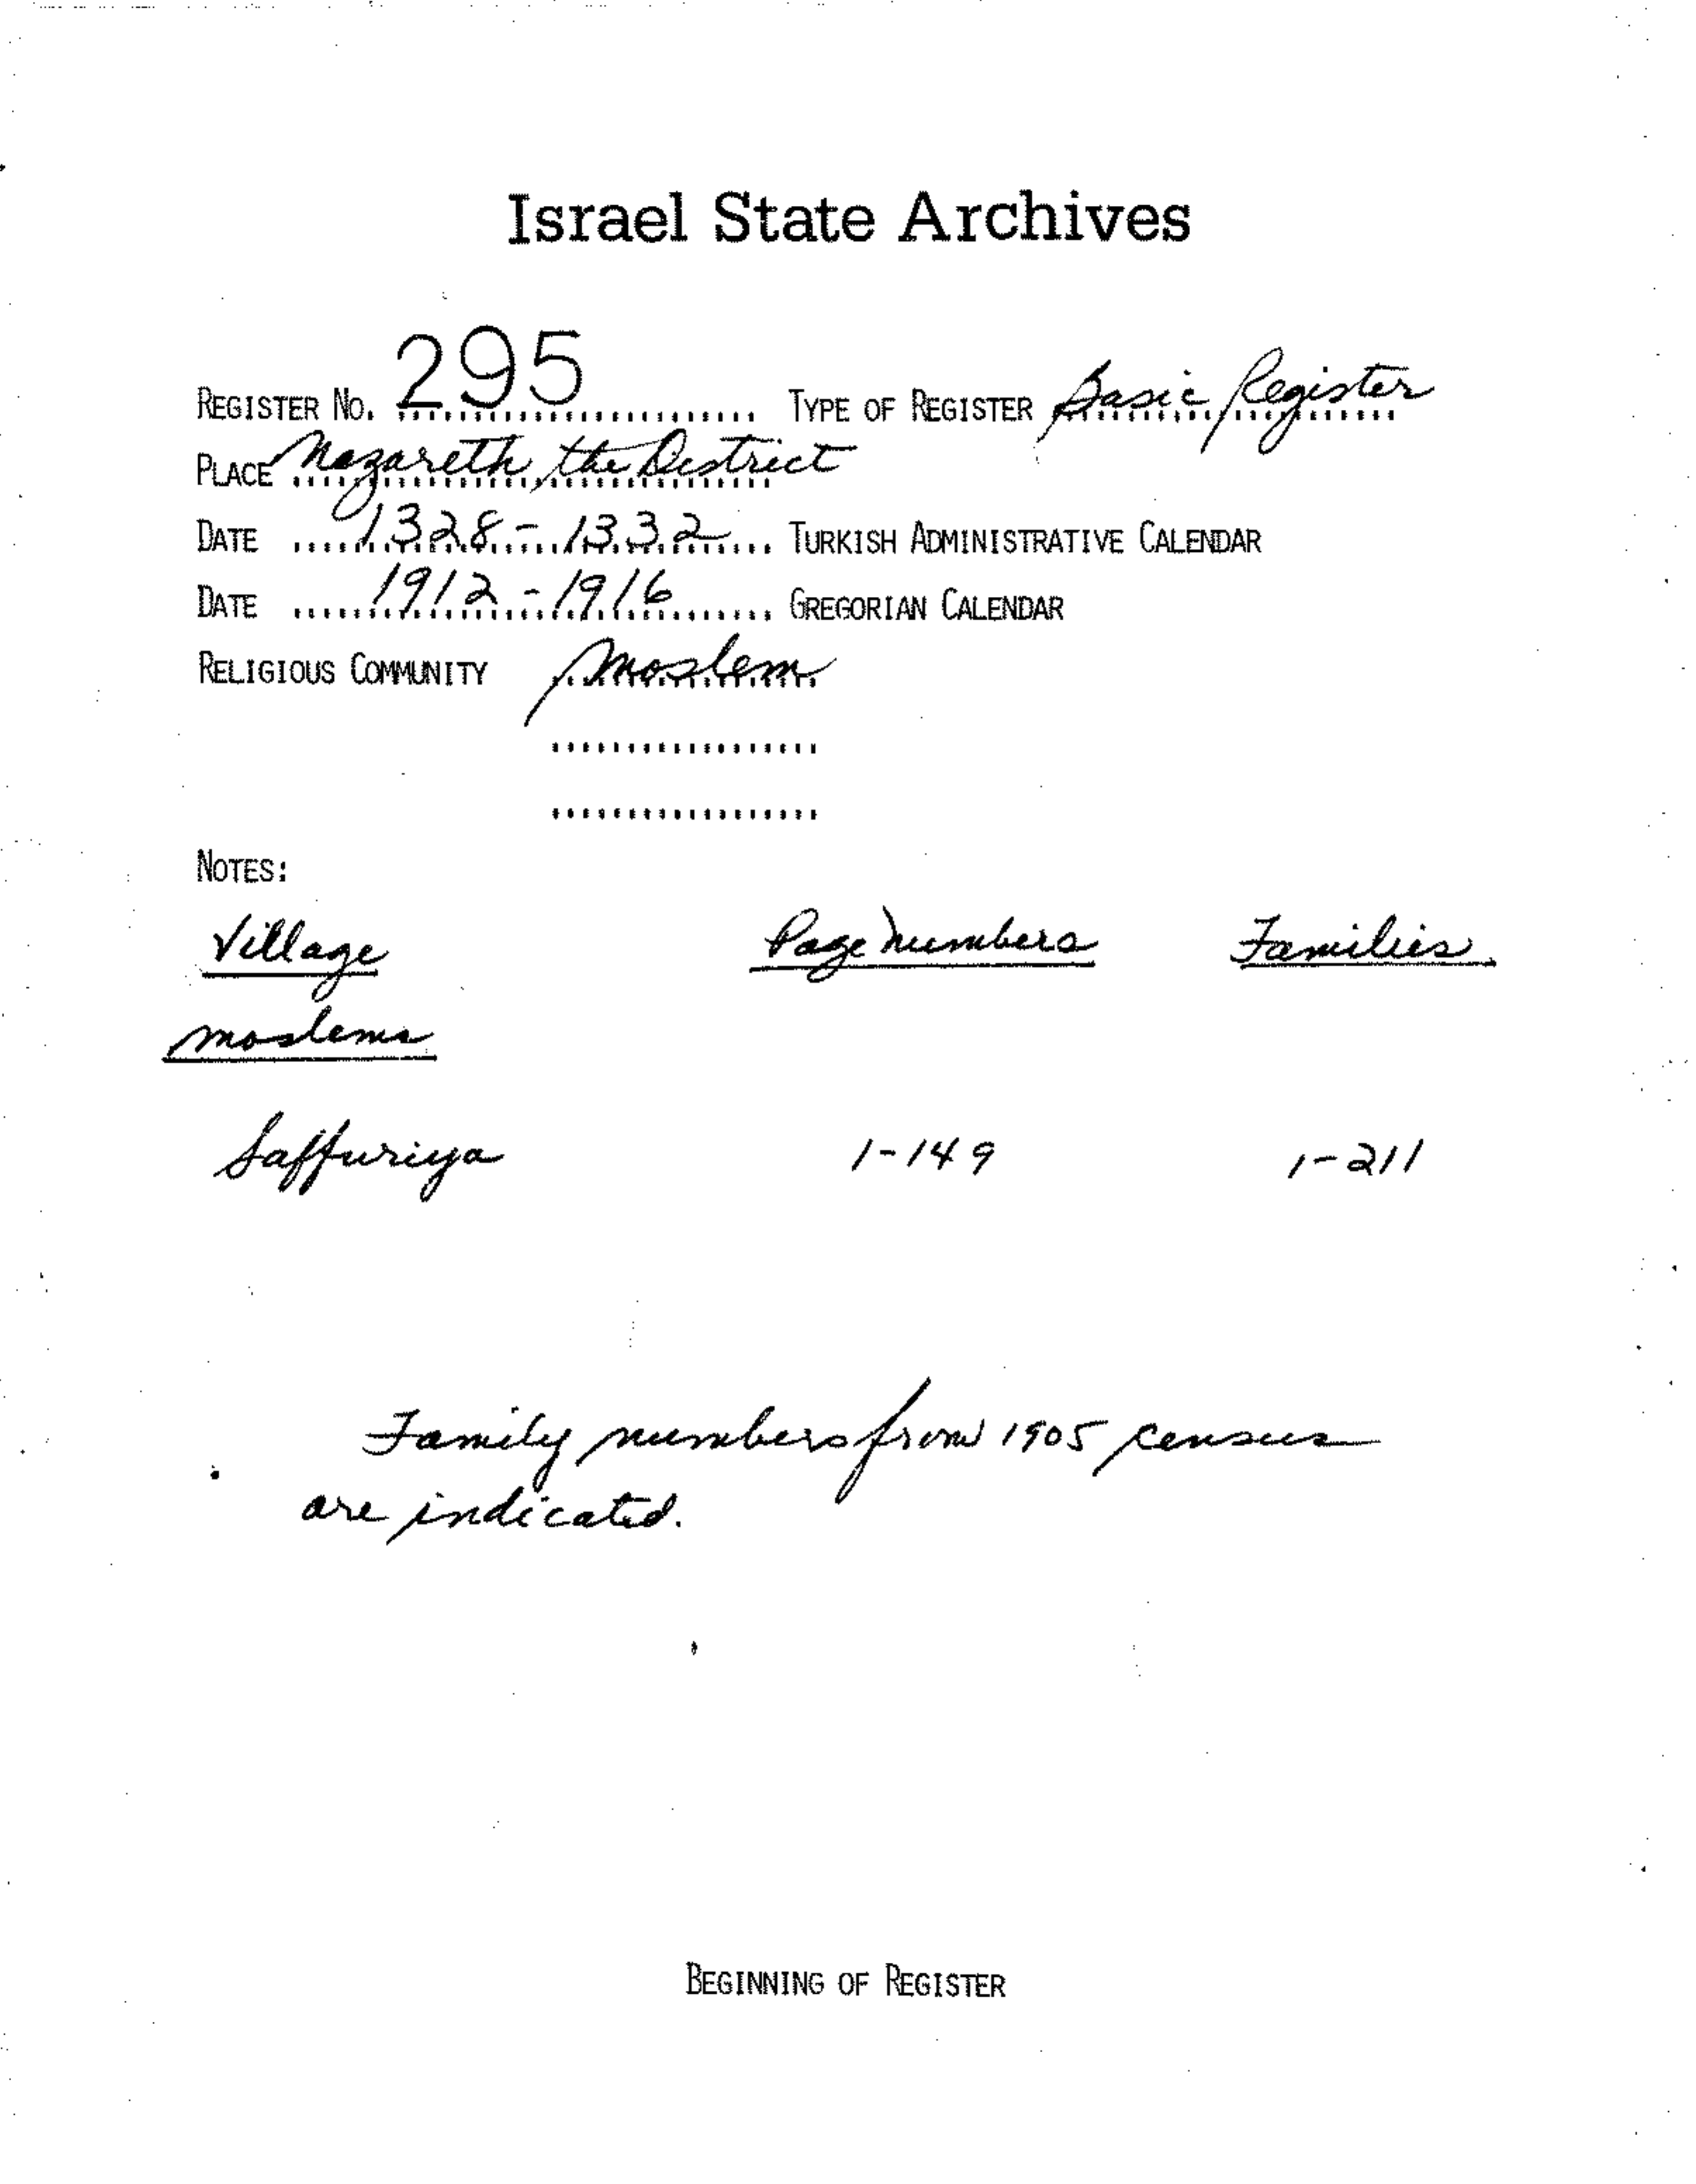 Israel State Archives
REGISTER NO. 295 TYPE OF REGISTER Basic Register
PLACE Nazareth, the District
DATE 1328-1332 TURKISH ADMINISTRATIVE CALENDAR
DATE 1912-1916 GREGORIAN CALENDAR
RELIGIOUS COMMUNITY Moslem
NOTES:
Village Page Numbers Families
Moslems
Saffuriya 1-149 1-211
Family numbers from 1905 census
are indicated.
BEGINNING OF REGISTER